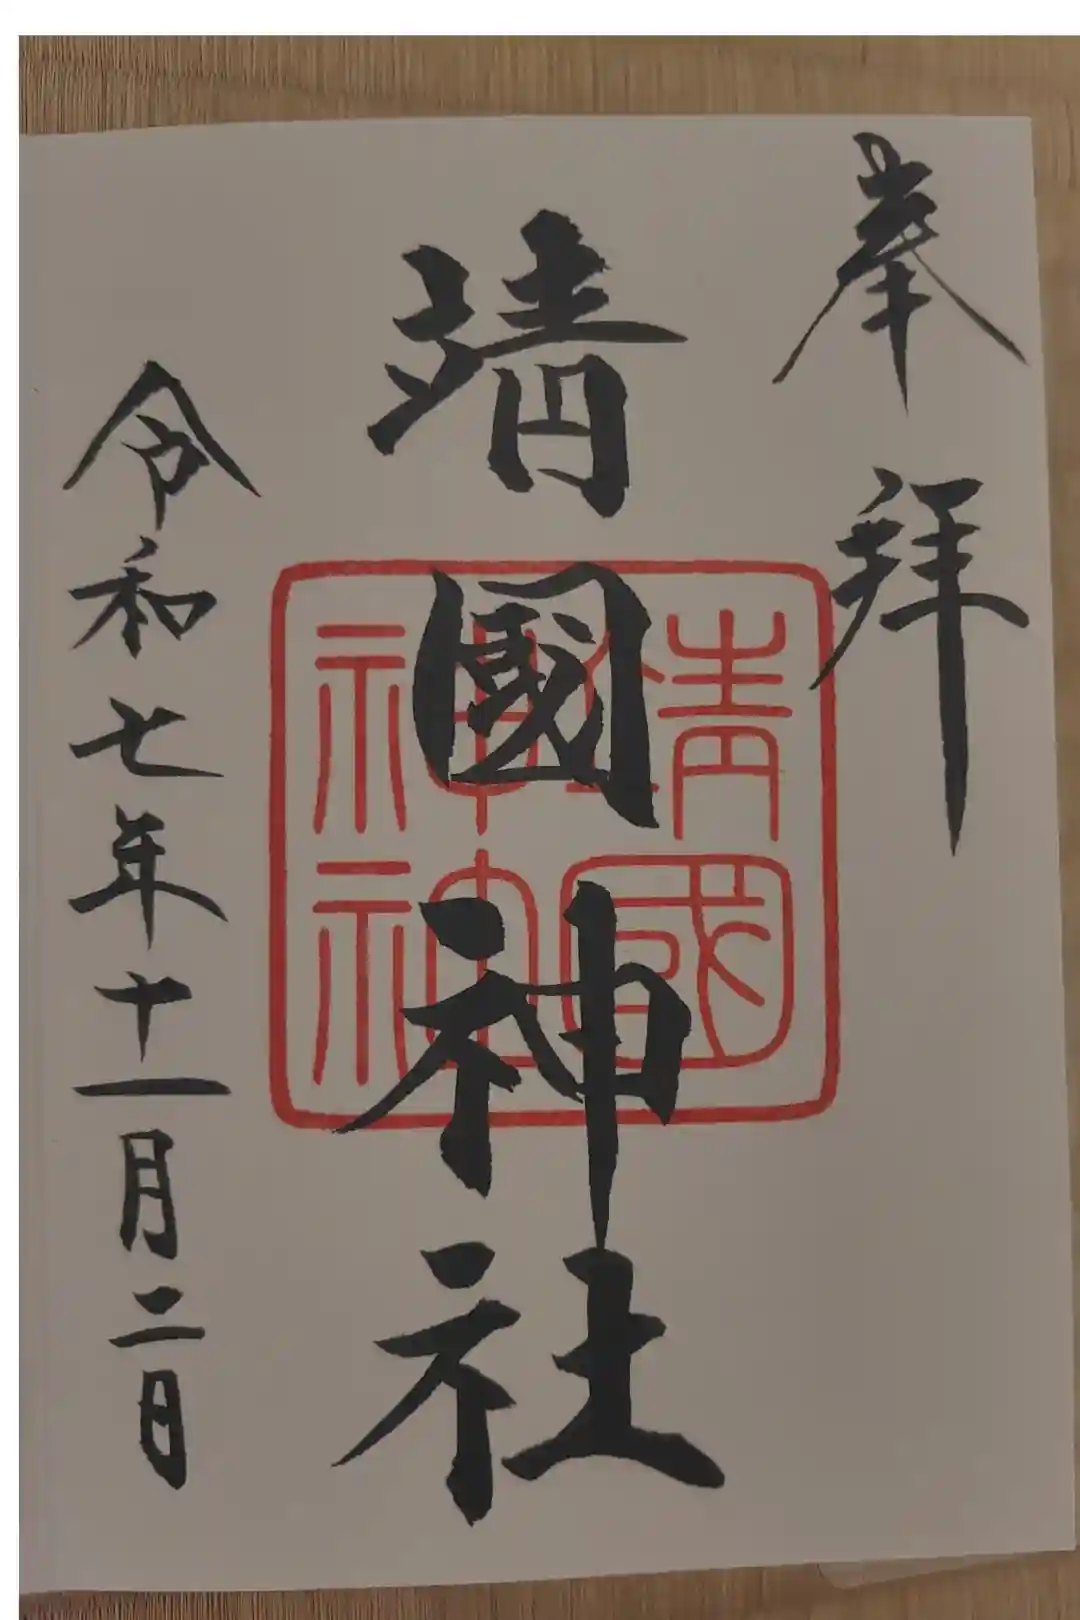 奉拝
靖國神社
靖國神社
令和七年十一月二日